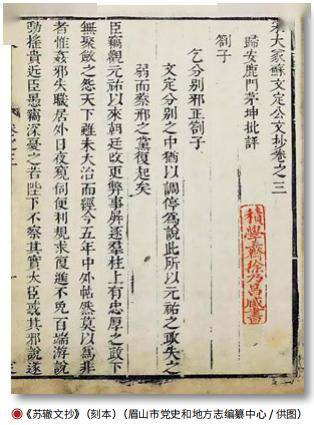 宋大家蘇文定公文抄卷之三
歸安鹿門茅坤批評
劄子
乞分别邪正劄子
文定分别之中猶以調停為說此所以元祐之政失之
弱而蔡邢之黨復起矣
臣竊觀元祐以來朝廷改更弊事屏逐羣枉上有忠厚之政下
無聚斂之怨天下雖未大治而經今五年中外帖然莫以爲非
者惟姦邪失職居外日夜窺伺便利規求復進不免百端游說
動搖貴近臣愚竊深憂之若陛下不察其實大臣惑其邪說遂
積學齋徐乃昌藏書
《苏辙文抄》（刻本）（眉山市党史和地方志编纂中心 / 供图）